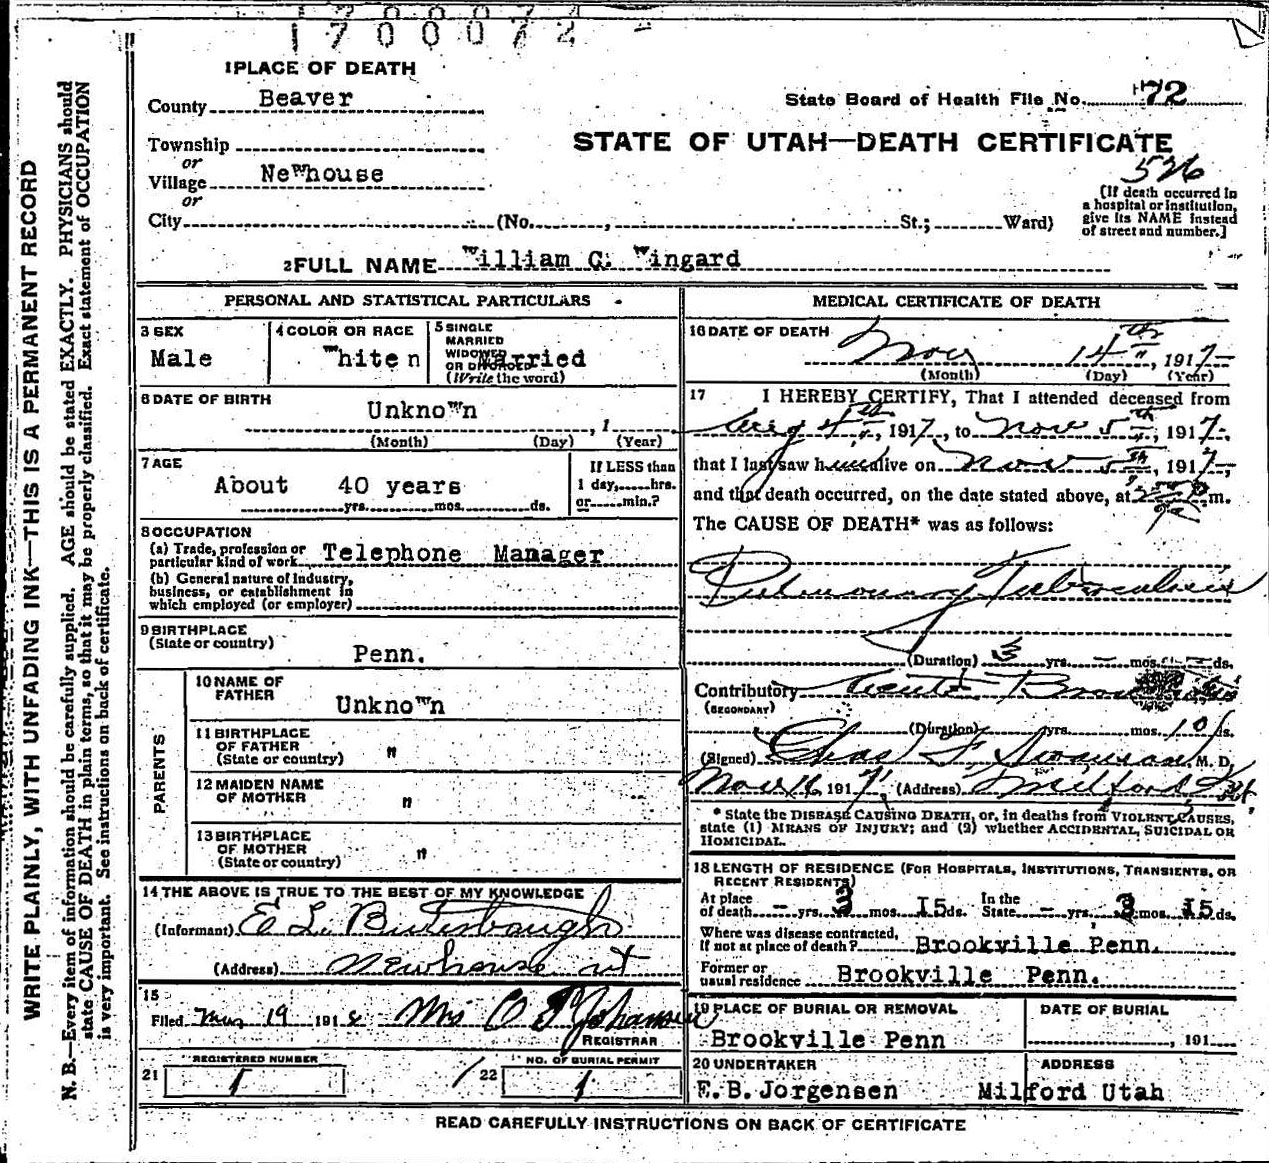 1700072
1 PLACE OF DEATH
County Beaver
State Board of Health File No. 72
Township
or
STATE OF UTAH—DEATH CERTIFICATE
526
Village Newhouse
or
City (No. , St.; Ward)
[If death occurred in
a hospital or institution,
give its NAME instead
of street and number.]
2 FULL NAME William C. Wingard
PERSONAL AND STATISTICAL PARTICULARS
3 SEX
Male
4 COLOR OR RACE
White n
5 SINGLE
MARRIED
WIDOWED
OR DIVORCED
(Write the word)
Married
6 DATE OF BIRTH
Unknown , 1
(Month) (Day) (Year)
7 AGE
About 40 years
yrs. mos. ds.
If LESS than
1 day, hrs.
or min.?
8 OCCUPATION
(a) Trade, profession or
particular kind of work Telephone Manager
(b) General nature of Industry,
business, or establishment in
which employed (or employer)
9 BIRTHPLACE
(State or country)
Penn.
PARENTS
10 NAME OF
FATHER
Unknown
11 BIRTHPLACE
OF FATHER
(State or country) "
12 MAIDEN NAME
OF MOTHER "
13 BIRTHPLACE
OF MOTHER
(State or country) "
14 THE ABOVE IS TRUE TO THE BEST OF MY KNOWLEDGE
(Informant) E L Buterbaugh
(Address) Newhouse ut
15
Filed Mar 19 1918 Mrs O F Johansen
REGISTRAR
REGISTERED NUMBER
21 1
NO. OF BURIAL PERMIT
22 1
MEDICAL CERTIFICATE OF DEATH
16 DATE OF DEATH
Nov 14th, 1917
(Month) (Day) (Year)
17 I HEREBY CERTIFY, That I attended deceased from
Aug 4th, 1917, to Nov 5th, 1917,
that I last saw him alive on Nov 5th, 1917,
and that death occurred, on the date stated above, at m.
The CAUSE OF DEATH* was as follows:
Pulmonary Tuberculosis
(Duration) 3 yrs. — mos. — ds.
Contributory Acute Bronchitis
(SECONDARY)
(Duration) yrs. mos. 10 ds.
(Signed) Chas F. M. D.
Nov 16 1917 (Address) Milford Ut
* State the DISEASE CAUSING DEATH, or, in deaths from VIOLENT CAUSES,
state (1) MEANS OF INJURY; and (2) whether ACCIDENTAL, SUICIDAL OR
HOMICIDAL.
18 LENGTH OF RESIDENCE (FOR HOSPITALS, INSTITUTIONS, TRANSIENTS, OR
RECENT RESIDENTS)
At place
of death — yrs. 3 mos. 15 ds.
In the
State — yrs. 3 mos. 15 ds.
Where was disease contracted,
If not at place of death? Brookville Penn.
Former or
usual residence Brookville Penn.
19 PLACE OF BURIAL OR REMOVAL
Brookville Penn
DATE OF BURIAL
, 191
20 UNDERTAKER
E.B.Jorgensen
ADDRESS
Milford Utah
READ CAREFULLY INSTRUCTIONS ON BACK OF CERTIFICATE
WRITE PLAINLY, WITH UNFADING INK—THIS IS A PERMANENT RECORD
N. B.—Every item of information should be carefully supplied. AGE should be stated EXACTLY. PHYSICIANS should
state CAUSE OF DEATH in plain terms, so that it may be properly classified. Exact statement of OCCUPATION
is very important. See instructions on back of certificate.